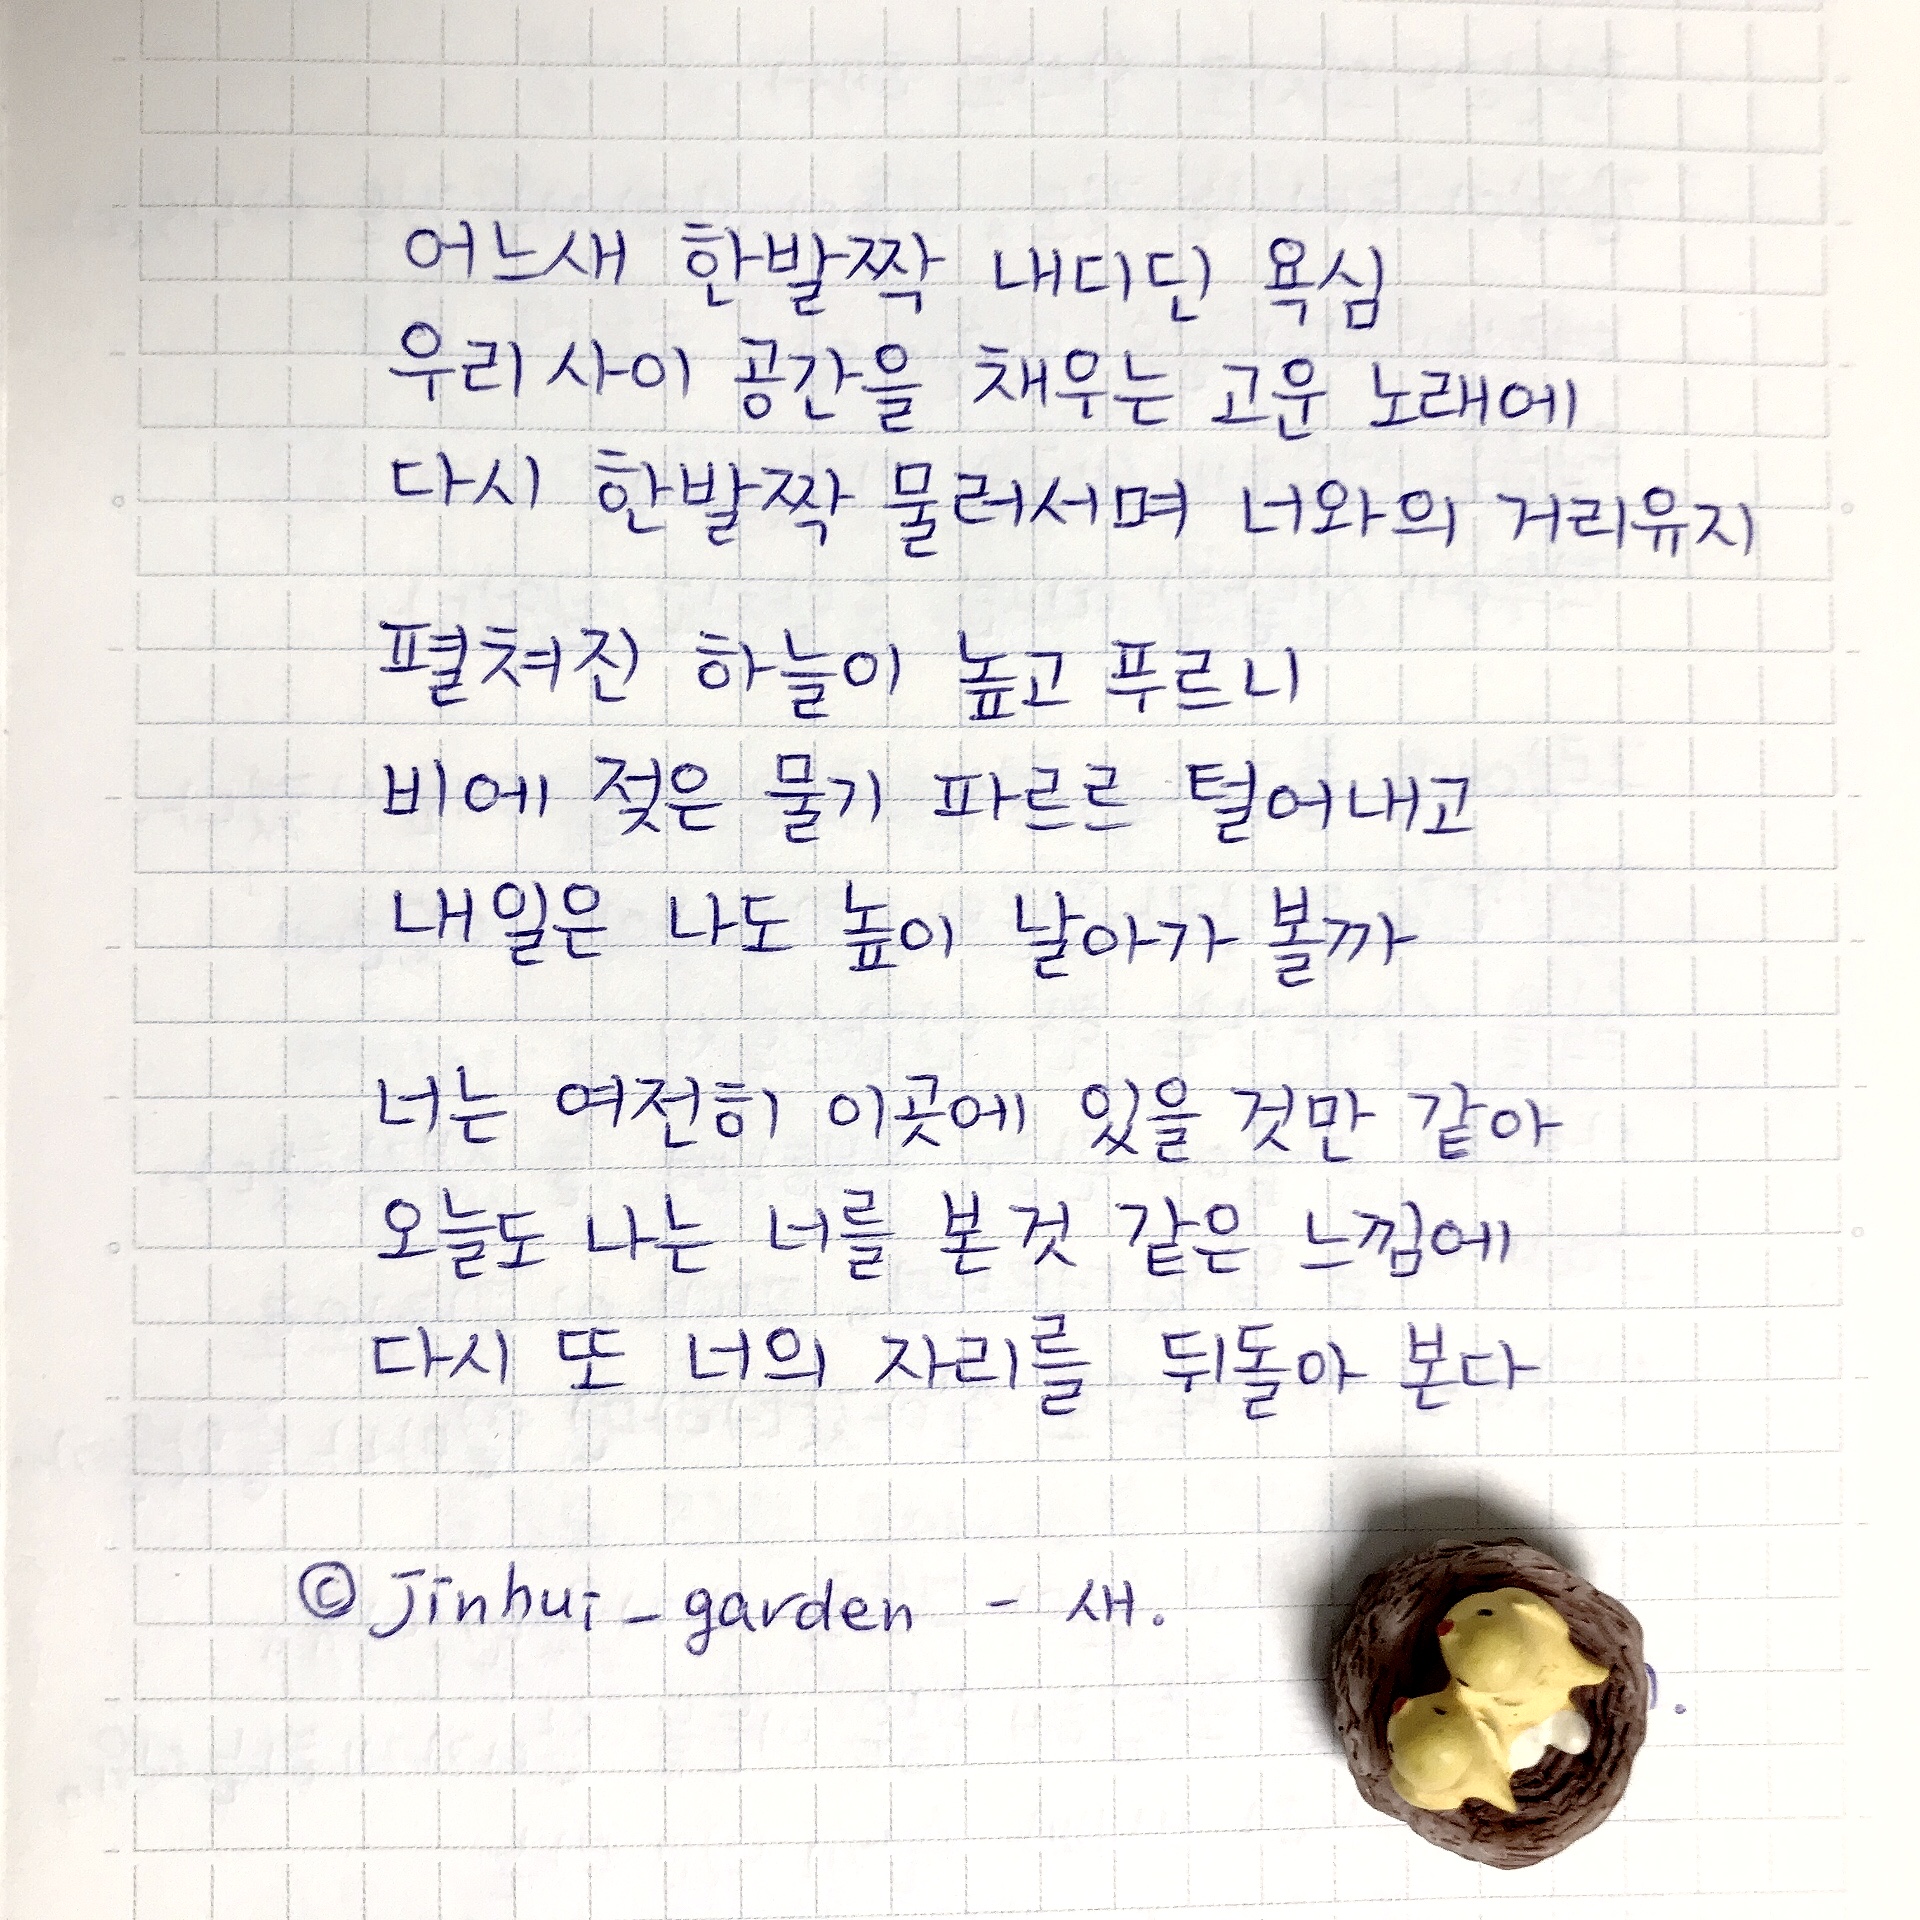 어느새 한발짝 내디딘 욕심
우리 사이 공간을 채우는 고운 노래에
다시 한발짝 물러서며 너와의 거리유지
펼쳐진 하늘이 높고 푸르니
비에 젖은 물기 파르르 털어내고
내일은 나도 높이 날아가 볼까
너는 여전히 이곳에 있을 것만 같아
오늘도 나는 너를 본 것 같은 느낌에
다시 또 너의 자리를 뒤돌아 본다
© Jinhui_garden - 새.